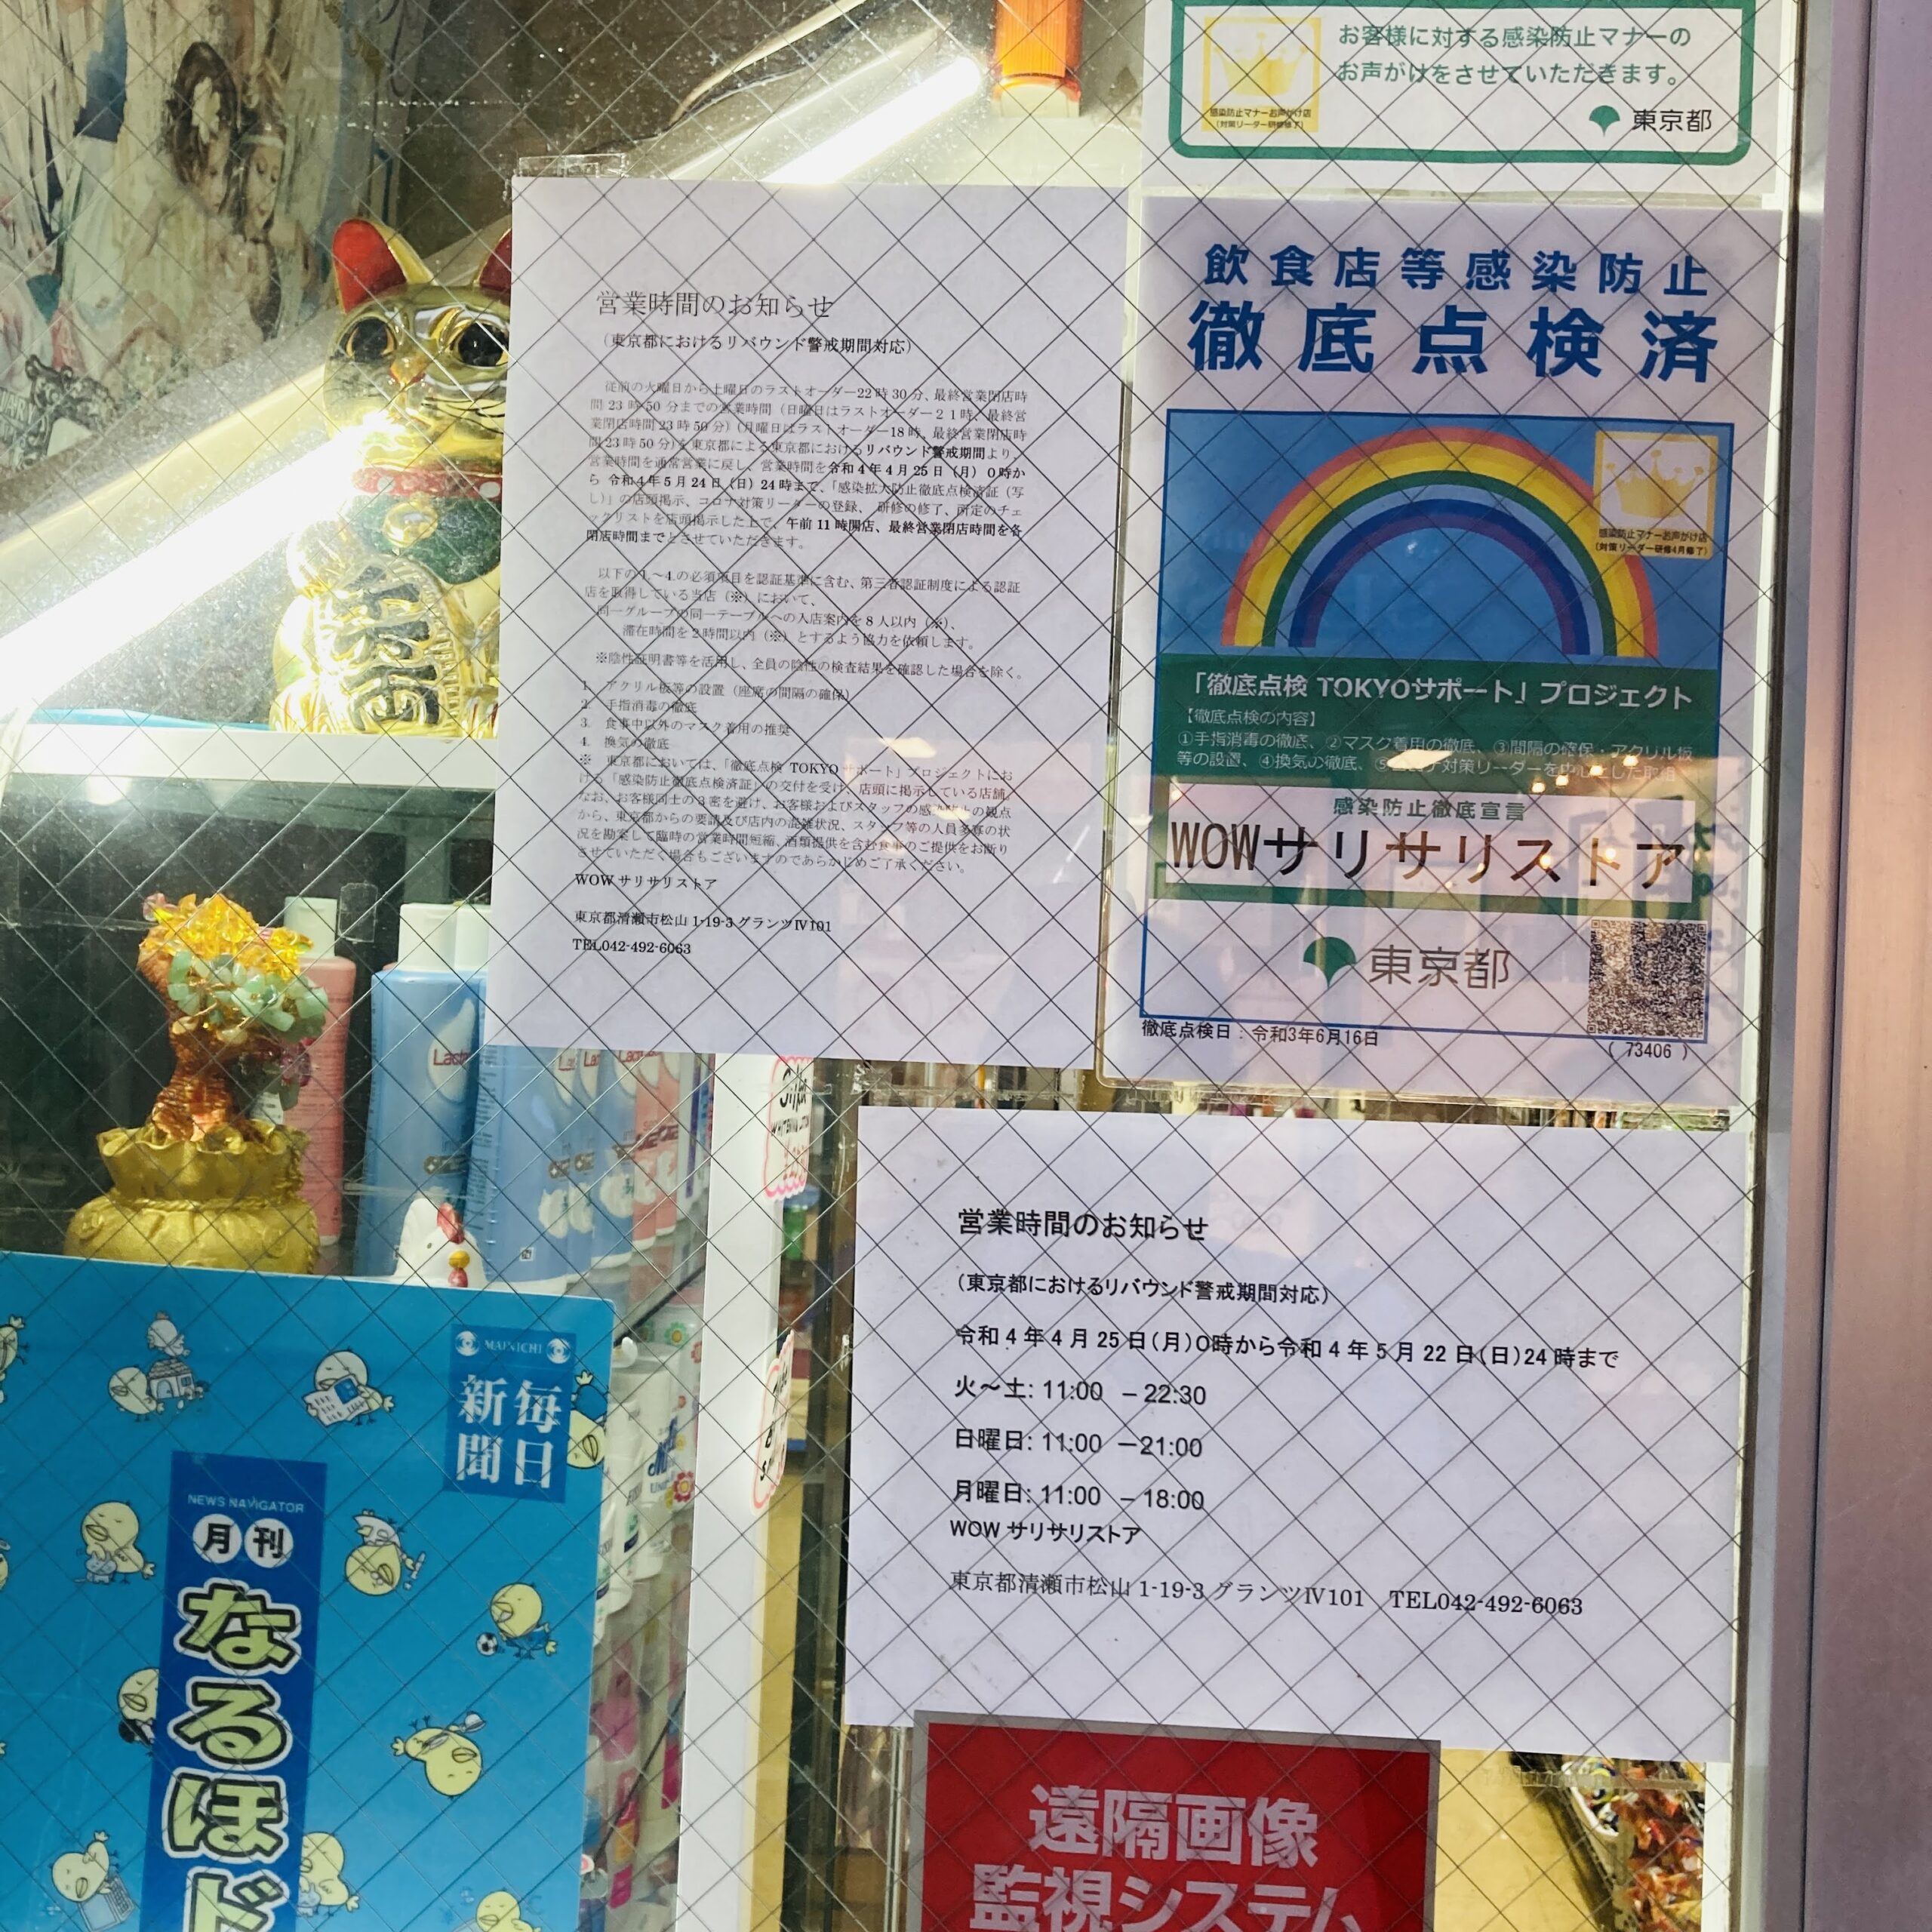 お客様に対する感染防止マナーの
お声がけをさせていただきます。
感染防止マナーお声がけ店
(対策リーダー研修修了)
東京都
営業時間のお知らせ
（東京都におけるリバウンド警戒期間対応）
従前の火曜日から土曜日のラストオーダー22時30分、最終営業閉店時
間23時50分までの営業時間（日曜日はラストオーダー２１時、最終営
業閉店時間23時50分）（月曜日はラストオーダー18時、最終営業閉店時
間23時50分)を東京都による東京都におけるリバウンド警戒期間より、
営業時間を通常営業に戻し、営業時間を令和4年4月25日（月）0時か
ら 令和4年5月24日（日）24時まで、「感染拡大防止徹底点検済証（写
し）」の店頭掲示、コロナ対策リーダーの登録、 研修の修了、所定のチェ
ックリストを店頭掲示した上で、午前11時開店、最終営業閉店時間を各
閉店時間までとさせていただきます。
以下の1.～4.の必須項目を認証基準に含む、第三者認証制度による認証
店を取得している当店（※）において、
同一グループの同一テーブルへの入店案内を8人以内（※）、
滞在時間を2時間以内（※）とするよう協力を依頼します。
※陰性証明書等を活用し、全員の陰性の検査結果を確認した場合を除く。
1. アクリル板等の設置（座席の間隔の確保）
2. 手指消毒の徹底
3. 食事中以外のマスク着用の推奨
4. 換気の徹底
※ 東京都においては、「徹底点検 TOKYOサポート」プロジェクトにお
ける「感染防止徹底点検済証」の交付を受け、店頭に掲示している店舗
なお、お客様同士の3密を避け、お客様およびスタッフの感染防止の観点
から、東京都からの要請及び店内の混雑状況、スタッフ等の人員多寡の状
況を勘案して臨時の営業時間短縮、酒類提供を含む食事のご提供をお断り
させていただく場合もございますのであらかじめご了承ください。
WOW サリサリストア
東京都清瀬市松山 1-19-3 グランツⅣ101
TEL042-492-6063
飲食店等感染防止
徹底点検済
感染防止マナーお声がけ店
(対策リーダー研修4月修了)
「徹底点検 TOKYOサポート」プロジェクト
【徹底点検の内容】
①手指消毒の徹底、②マスク着用の徹底、③間隔の確保・アクリル板
等の設置、④換気の徹底、⑤コロナ対策リーダーを中心とした取組
感染防止徹底宣言
WOWサリサリストア
東京都
徹底点検日：令和3年6月16日
( 73406 )
営業時間のお知らせ
（東京都におけるリバウンド警戒期間対応）
令和4年4月25日(月)0時から令和4年5月22日(日)24時まで
火～土: 11:00 －22:30
日曜日: 11:00 －21:00
月曜日: 11:00 －18:00
WOW サリサリストア
東京都清瀬市松山 1-19-3 グランツⅣ101 TEL042-492-6063
MAINICHI
毎日
新聞
NEWS NAVIGATOR
月刊
なるほド
遠隔画像
監視システム